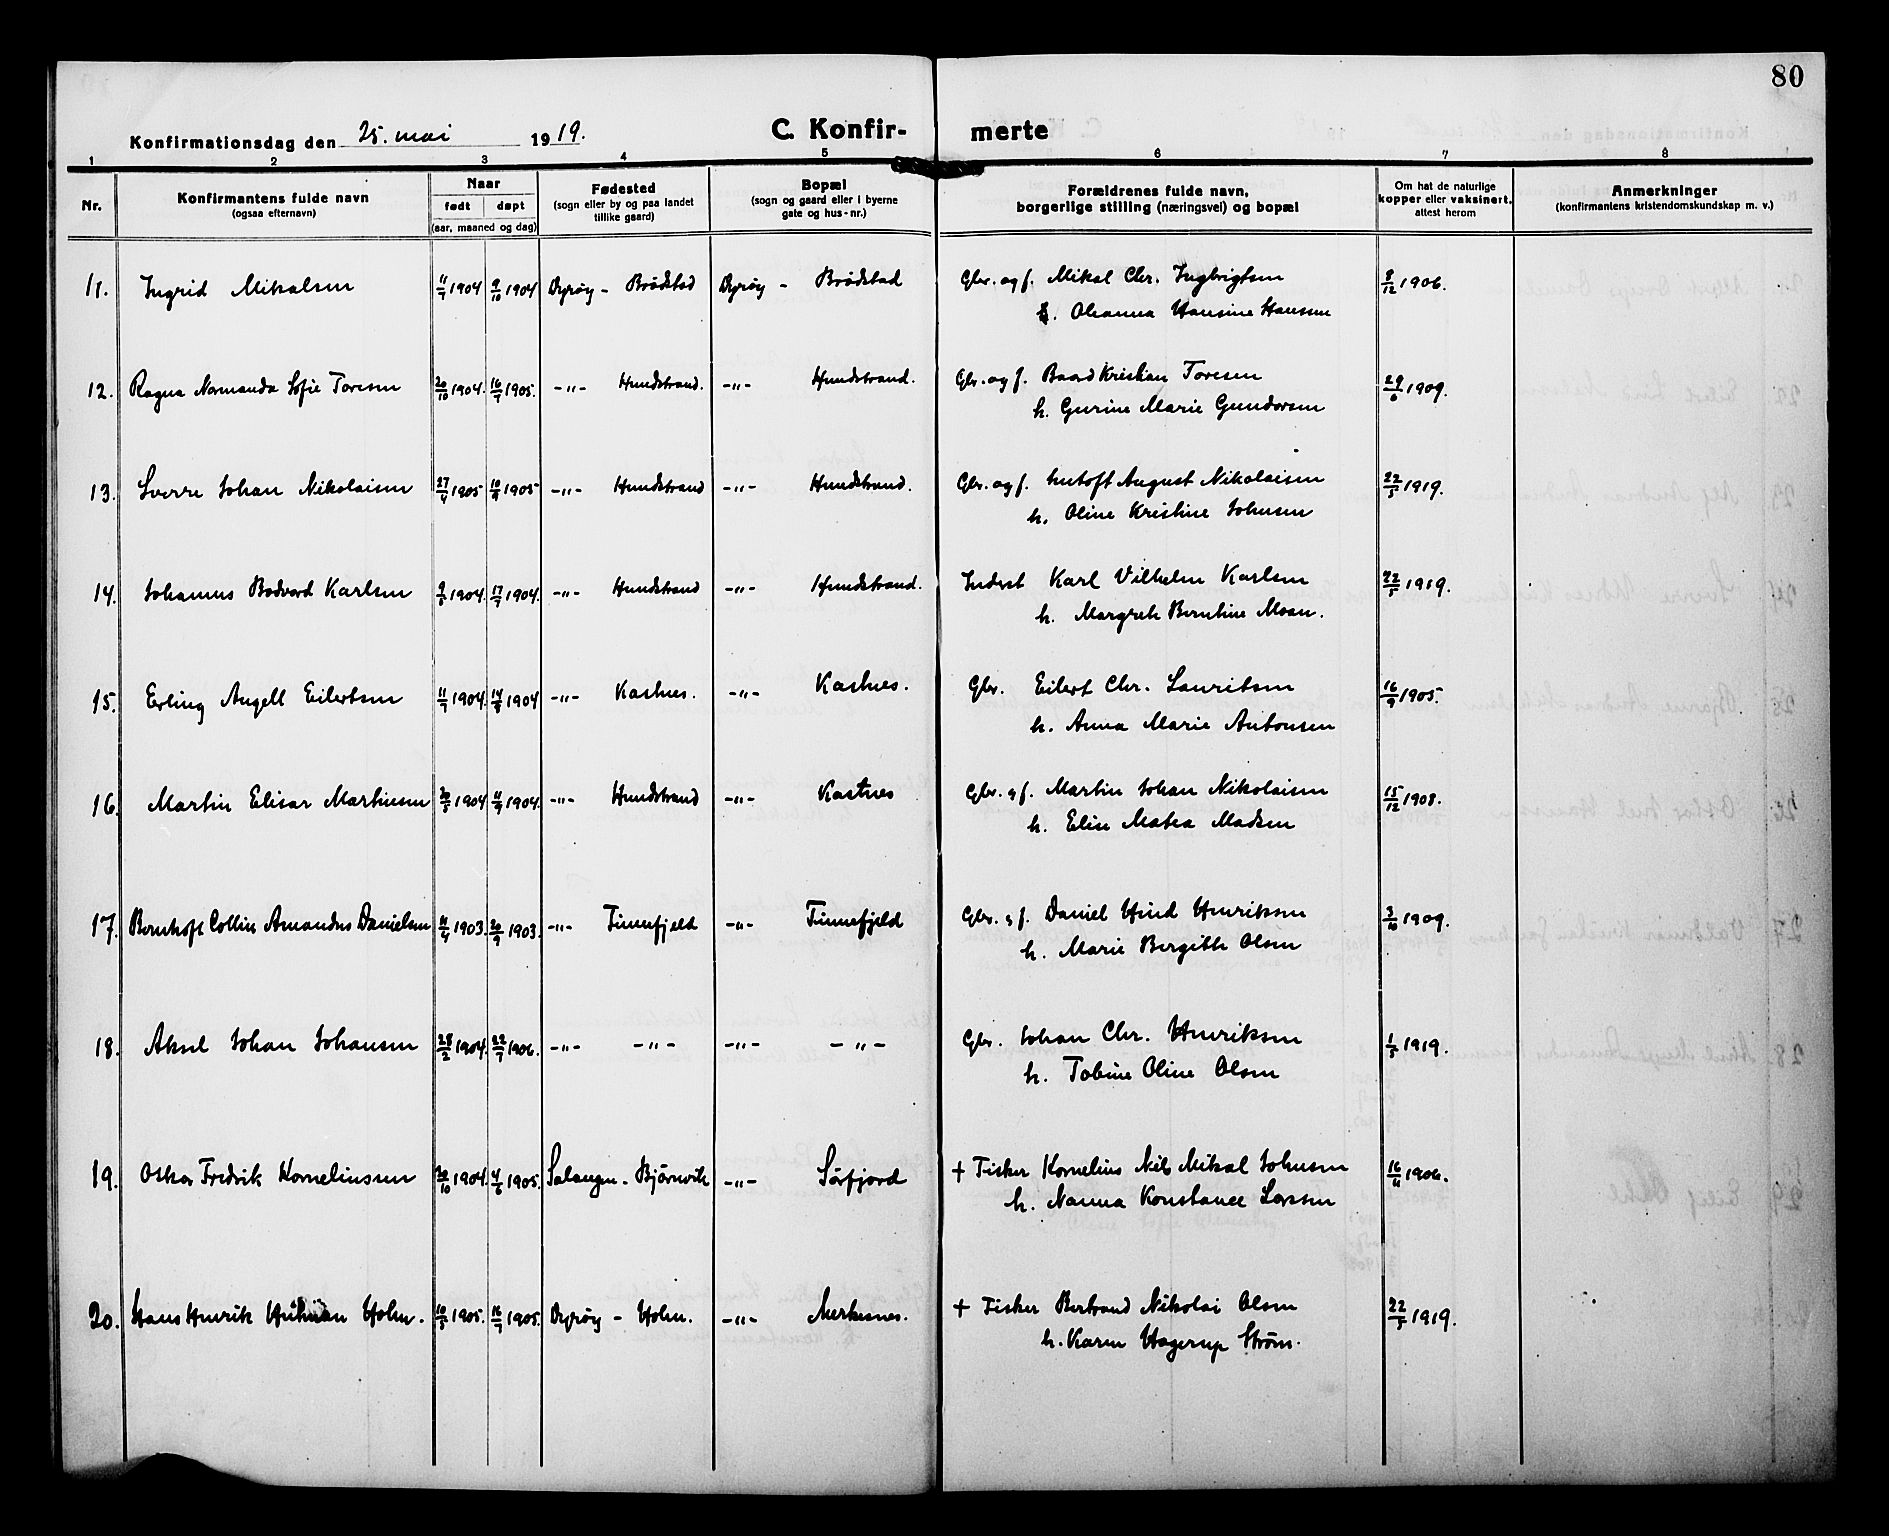 80
Konfirmationsdag den 25. mai 1919.
C. Konfir- merte
1 2 3 4 5 6 7 8
Nr. Konfirmantens fulde navn (ogsaa efternavn) Naar født døpt (aar, maaned og dag) Fødested (sogn eller by og paa landet tillike gaard) Bopæl (sogn og gaard eller i byerne gate og hus-nr.) Forældrenes fulde navn, borgerlige stilling (næringsvei) og bopæl Om hat de naturlige kopper eller vaksinert, attest herom Anmerkninger (konfirmantens kristendomskundskap m. v.)
11. Ingrid Mikalsen 11/7 1904 9/10 1904 Dyrøy - Brødstad Dyrøy - Brødstad Gbr. og f. Mikal Chr. Ingbrigtsen 8/12 1906.
h. Oleanna Hansine Hansen
12. Ragna Normanda Sofie Toresen 20/10 1904. 16/7 1905. -"- Hundstrand. -"- Hundstrand. Gbr. og f. Baard Kristian Toresen 29/6 1909.
h. Gurine Marie Gundersen
13. Sverre Johan Nikolaisen 27/4 1905 10/9 1905 -"- Hundstrand -"- Hundstrand. Gbr. og f. Lutoft August Nikolaisen 22/5 1919.
h. Oline Kristine Johnsen
14. Johannes Bodvard Karlsen 9/6 1904. 17/7 1904. -"- Hundstrand -"- Hundstrand. Inderst Karl Vilhelm Karlsen 22/5 1919.
h. Margrete Berntine Moan.
15. Erling Angell Eilertsen 11/7 1904. 14/8 1904 -"- Kastnes. -"- Kastnes. Gbr. Eilert Chr. Lauritsen 16/9 1905.
h. Anna Marie Antonsen
16. Martin Elisar Martinsen 20/5 1904 11/9 1904. -"- Hundstrand -"- Kastnes Gbr. & f. Martin Johan Nikolaisen 15/12 1908.
h. Elin Matea Madsen
17. Bernhoft Collin Amandus Danielsen 11/4 1903. 20/9 1903. -"- Finnefjeld -"- Finnefjeld Gbr. & f. Daniel Hind Henriksen 3/10 1909.
h. Marie Bergitte Olsen
18. Aksel Johan Johansen 28/2 1904. 22/7 1906. -"- -"- -"- -"- Gbr. Johan Chr. Henriksen 1/5 1919.
h. Tobine Oline Olsen
19. Oskar Fredrik Kornelinssen 30/10 1904. 4/6 1905. Salangen - Bjørnvik -"- Sørfjord + Fisker Kornelius Nils Mikal Johnsen 16/11 1906.
h. Nanna Konstance Larssen
20. Hans Henrik Holm. 10/5 1905. 16/7 1905. Dyrøy - Holm. -"- Merkesnes. + Fisker Bertrand Nikolai Olsen 22/5 1919.
h. Karen Hagerup Strøm.